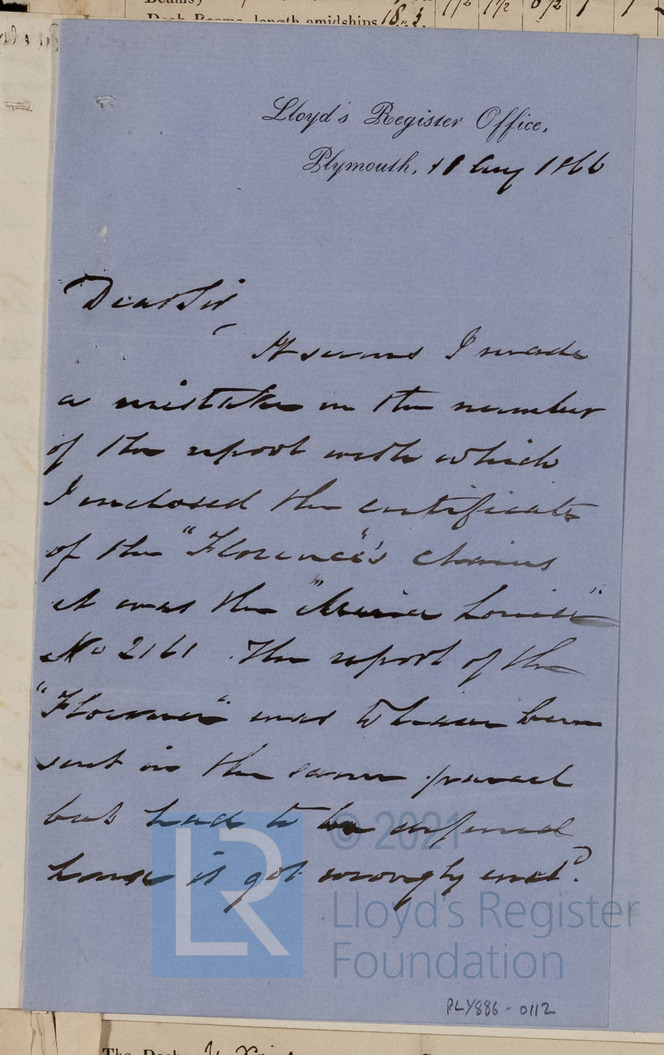 Deck Beams, length amidships 18.3
Lloyd's Register Office,
Plymouth, 18 Aug 1866
Dear Sir
It seems I made
a mistake in the number
of the report with which
I enclosed the certificate
of the "Florence"'s chains
it was the "Maria Louisa"
No 2161. The report of the
"Florence" was to have been
sent in the same parcel
but had to be deferred
hence it got wrongly encd.
© 2021
LR
Lloyd's Register
Foundation
PLY886-0112